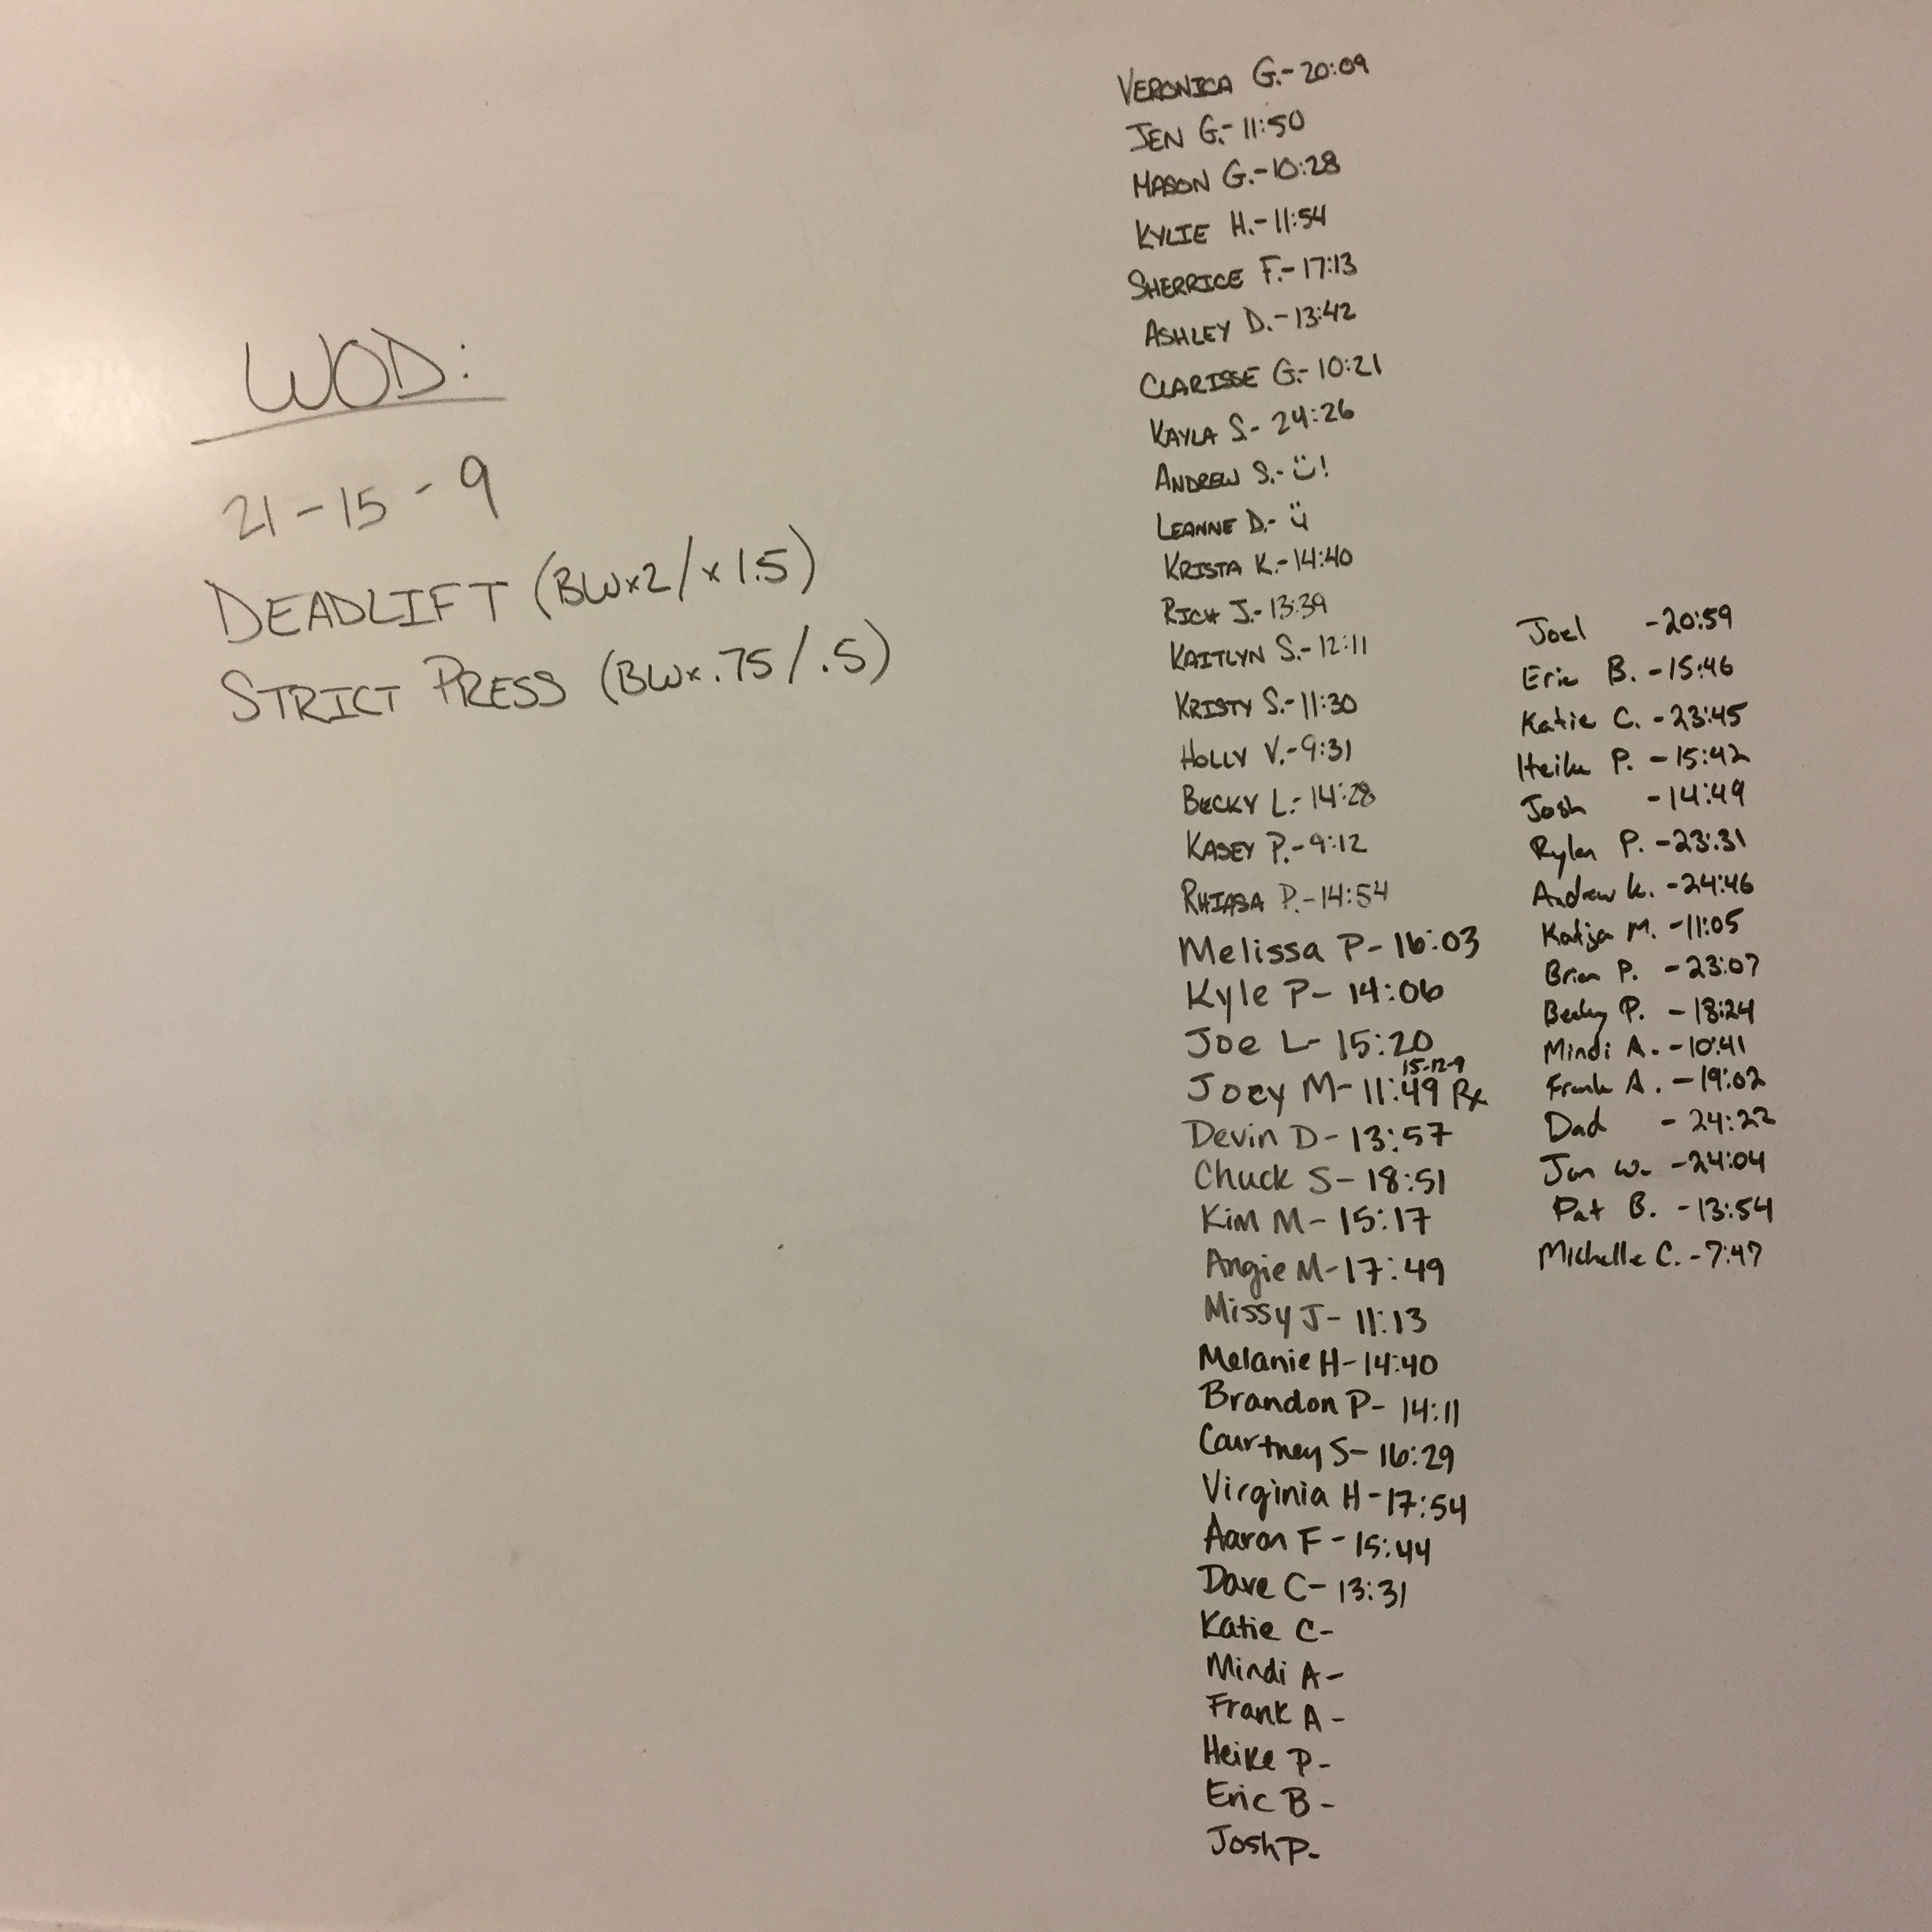 WOD:
21-15-9
DEADLIFT (BWx2/x1.5)
STRICT PRESS (BWx.75/.5)
VERONICA G.-20:09
JEN G.-11:50
MASON G.-10:28
KYLIE H.-11:54
SHERRICE F.-17:13
ASHLEY D.-13:42
CLARISSE G.-10:21
KAYLA S.-24:26
ANDREW S.-!
LEANNE D.-
KRISTA K.-14:40
RICH J.-13:39
KAITLYN S.-12:11
KRISTY S.-11:30
HOLLY V.-9:31
BECKY L.-14:28
KASEY P.-9:12
RHIASA P.-14:54
Melissa P-16:03
Kyle P-14:06
Joe L-15:20
15-12-9
Joey M-11:49 Rx
Devin D-13:57
Chuck S-18:51
Kim M-15:17
Angie M-17:49
Missy J-11:13
Melanie H-14:40
Brandon P-14:11
Courtney S-16:29
Virginia H-17:54
Aaron F-15:44
Dave C-13:31
Katie C-
Mindi A-
Frank A-
Heike P-
Eric B-
Josh P-
Joel -20:59
Eric B. -15:46
Katie C. -23:45
Heike P. -15:42
Josh -14:49
Rylan P. -23:31
Andrew K. -24:46
Katja M. -11:05
Brian P. -23:07
Becky P. -18:24
Mindi A. -10:41
Frank A. -19:02
Dad -24:22
Jon W. -24:04
Pat B. -13:54
Michelle C. -7:47